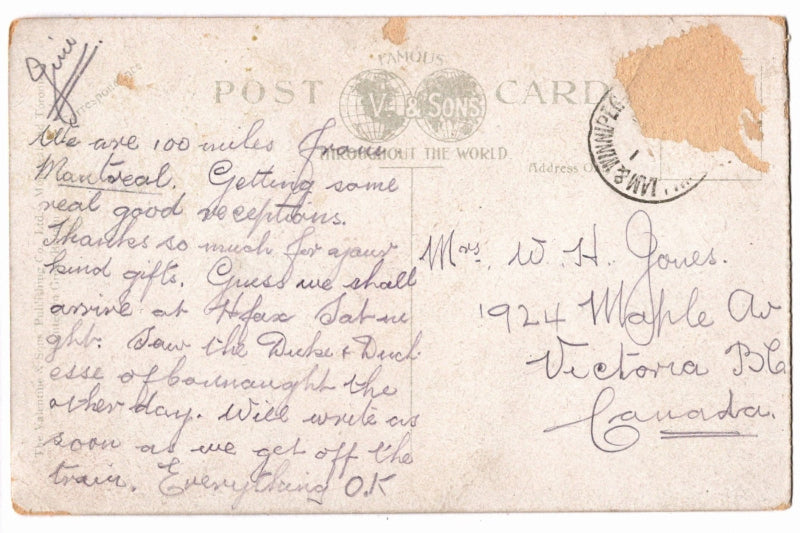 FAMOUS
POST CARD
V. & SONS
THROUGHOUT THE WORLD
Correspondence
Address O
WINNIPEG
We are 100 miles from
Mantreal. Getting some
real good receptions.
Thanks so much for your
kind gifts. Guess we shall
arrive at Hfax Sat ni
ght. Saw the Duke & Duch
esse of Connaught the
other day. Will write as
soon as we get off the
train. Everything OK
Mrs. W. H. Jones.
1924 Maple Av
Victoria BC
Canada.
The Valentine & Sons Publishing Co., Ltd.